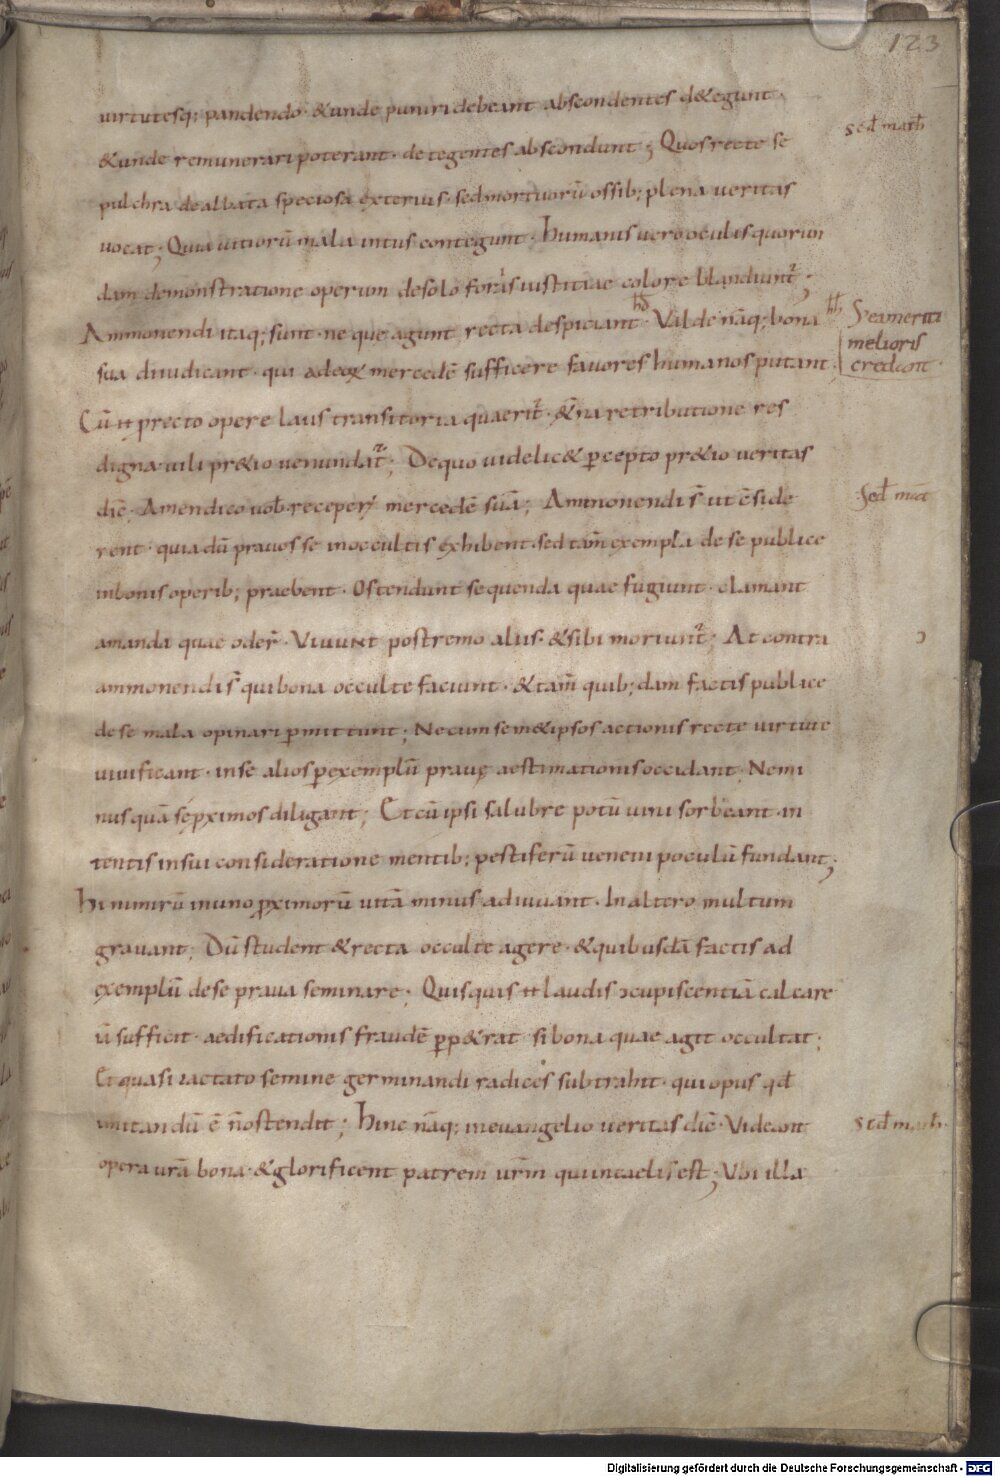 123
uirtutesq; pandendo · & unde puniri debeant abscondentes d&egunt ·
sc̄d math̄
& unde remunerari poterant · detegentes abscondunt ; Quos recte se
pulchra dealbata speciosa exterius · sed mortuorū ossib; plena ueritas
uocat ; Quia uitiorū mala intus contegunt · humanis uero oculis quorun
dam demonstratione operum de solo foris iustitiae colore blandiunt᷑ ;
Ammonendi itaq; sunt · ne que agunt recta despiciant hđ · Valde nāq; bona
hƀ Sea meriti
melioris
credant
sua diiudicant · qui ad eoꝝ mercedē sufficere fauores humanos putant ·
Cū ꞇ p recto opere laus transitoria quaerit᷑ · &ńa retributione res
digna uili pr&io uenundat᷑ ; De quo uidelic& ꝑcepto pr&io ueritas
dic̄ · Amen dico uob̄ receper̄ mercedē suā ; Ammonendi s̄ ut c̄side
Sed̄ mat̄
rent · quia dū prauos se in occultis exhibent · sed tam̄ exempla de se publice
in bonis operib; praebent · Ostendunt sequenda quae fugiunt · clamant
amanda quae oder̄ · Viuunt postremo aliis · & sibi moriunt᷑ ; At contra
ↄ
ammonendi s̄ qui bona occulte faciunt · & tam̄ quib;dam factis publice
de se mala opinari ꝑmittunt ; Ne cum sem&ipsos actionis recte uirtute
uiuificant · in se alios ꝑ exemplū praue aestimationis occidant · Ne mi
nus quā se ꝓximos diligant ; Et cū ipsi salubre potū uini sorbeant · in
tentis in sui consideratione mentib; pestiferū ueneni poculū fundant ;
hi nimirū in uno ꝓximorū uitā minus adiuuant · In altero multum
grauant ; Dū student & recta occulte agere · & quibusdā factis ad
exemplū de se praua seminare · Quisquis ꞇ laudis ↄcupiscentiā calcare
iā sufficit · aedificationis fraudē ꝑp&rat · si bona quae agit occultat ;
Et quasi iactato semine germinandi radices subtrahit · qui opus qđ
imitandū ē n̄ ostendit ; Hinc nāq; in euangelio ueritas dic̄ · Videant
sc̄d math̄ ·
opera urā bona · & glorificent patrem urm̄ qui in caelis est ; Vbi illa
Digitalisierung gefördert durch die Deutsche Forschungsgemeinschaft - DFG